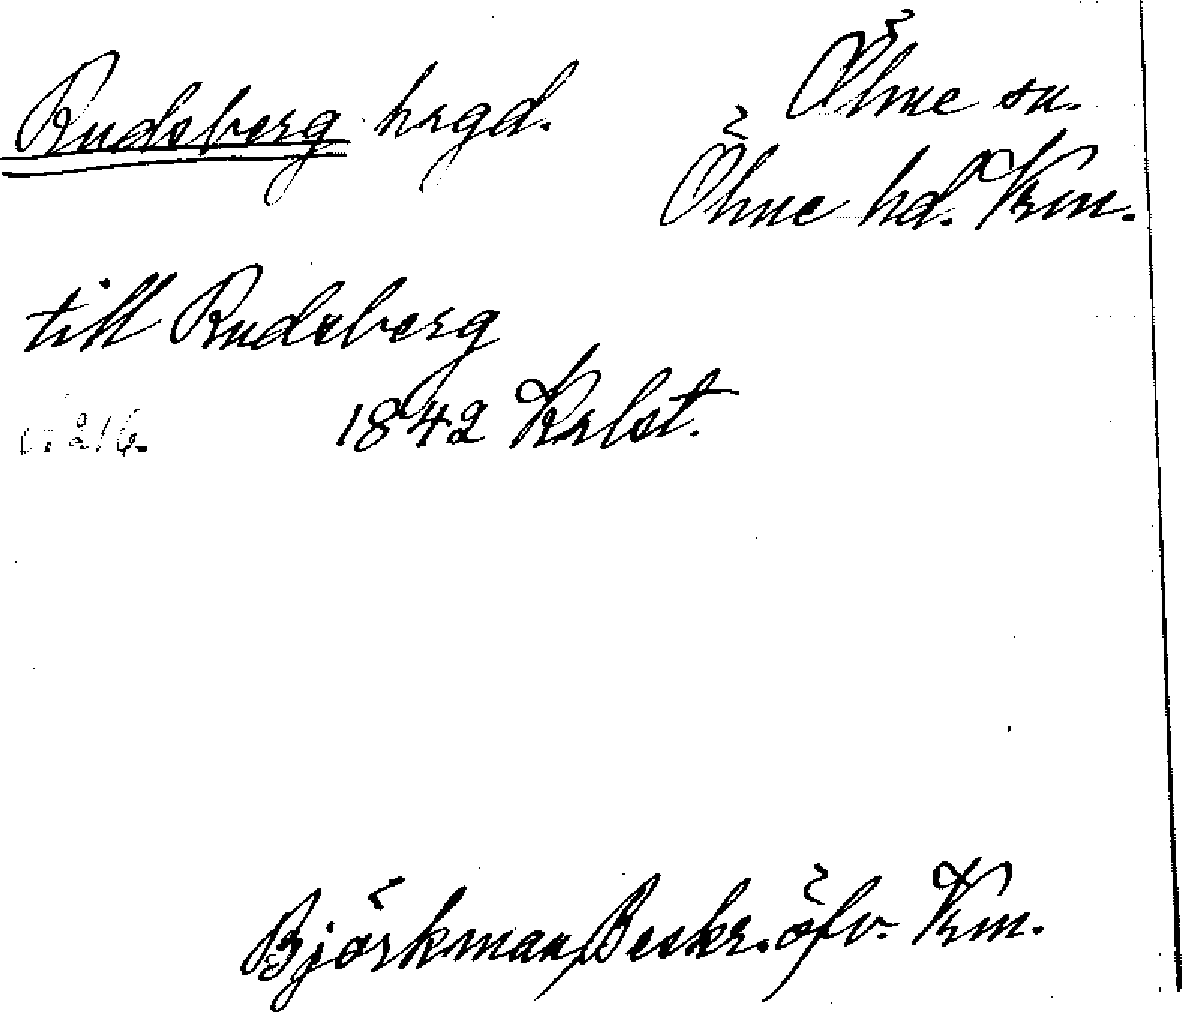 Rudsberg hrgd.
Ölme sn.
Ölme hd. Krm.
till Rudsberg
s. 216. 1842 Krlst.
Björkman, Beskr. öfv. Krm.